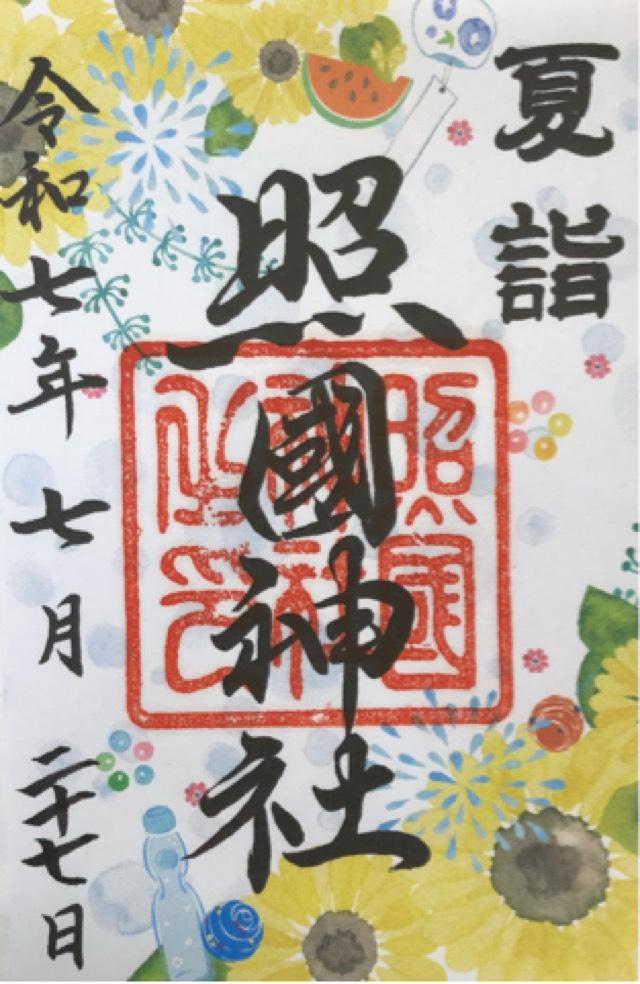 夏詣
照國神社
令和七年七月二十七日